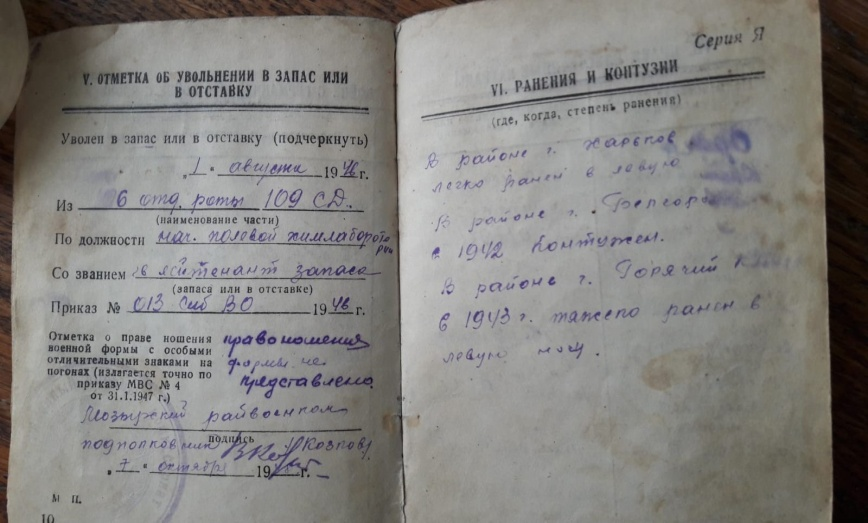 V. ОТМЕТКА ОБ УВОЛЬНЕНИИ В ЗАПАС ИЛИ
В ОТСТАВКУ
Уволен в запас или в отставку (подчеркнуть)
„1" августа 1946 г.
Из 6 отд. роты 109 СД.
(наименование части)
По должности нач. полевой химлаборотории
Со званием лейтенант запаса
(запаса или в отставке)
Приказ № 013 Сиб ВО 1946 г.
Отметка о праве ношения
военной формы с особыми
отличительными знаками на
погонах (излагается точно по
приказу МВС № 4
от 31.1.1947 г.)
право ношения
формы не
представлено
Мозырский райвоенком
подполковник Козлов
подпись
„7" октября 19 г.
М П.
10
Серия Я
VI. РАНЕНИЯ И КОНТУЗИИ
(где, когда, степень ранения)
В районе г. Харьков
легко ранен в левую
В районе г.
в 1942 контужен.
В районе г. Горячий
в 1943 г. тяжело ранен в
левую ногу.